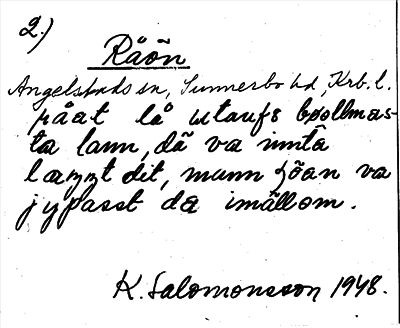 2.)
Råön
Angelstads sn, Sunnerbo hd, Krb. l.
råat lå utaufs boollmas-
ta lann, dã va inntâ
laɳɳt dit, munn sjöan va
jypasst da imällom.
K. Salomonsson 1948.